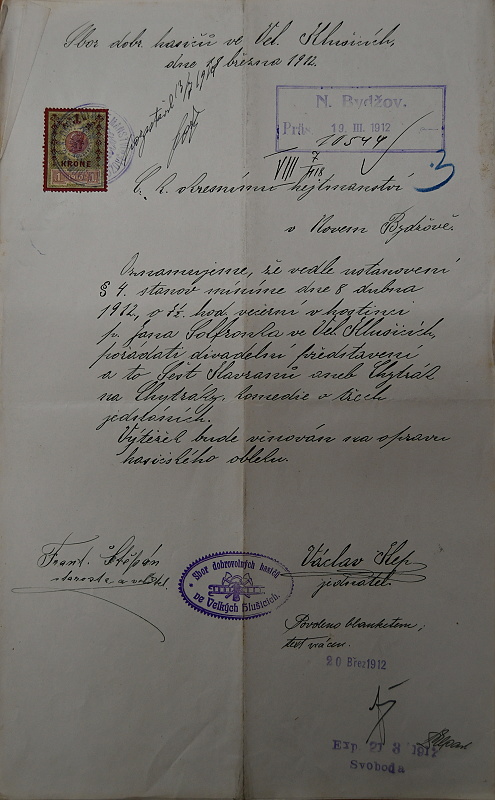 Sbor dobr. hasičů ve Vel. Hlušicích,
dne 18 března 1912.
KRONE
1
N. Bydžov.
Präs. 19. III. 1912
10544
VIII 7
3
C. k. okresnímu hejtmanství
v Novém Bydžově.
Oznamujeme, že vedle ustanovení
§ 4. stanov míníme dne 8 dubna
1912, o hod. večerní v hostinci
p. Jana ve Vel. Hlušicích,
pořádati divadelní představení
a to Šest Havranů aneb Chytrák
na Chytráky, komedie o třech
jednáních.
Výtěžek bude věnován na opravu
hasičského obleku.
Frant. Štěpán
starosta a velitel.
Sbor dobrovolných hasičů
ve Velkých Hlušicích.
Václav
jednatel
Povoleno blanketem;
text vrácen.
20 Břez 1912
Exp 21 3 1912
Svoboda